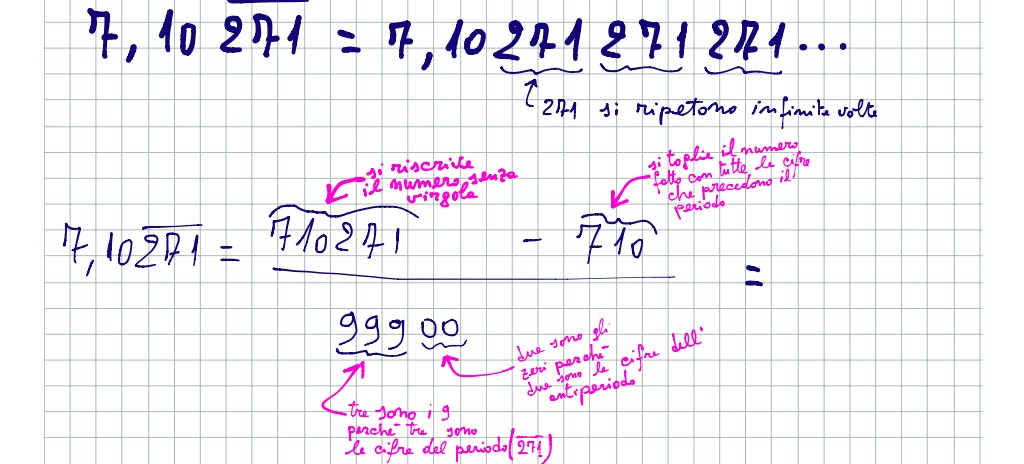 7,10 271 = 7,10 271 271 271...
271 si ripetono infinite volte
si riscrive
il numero senza
virgola
si toglie il numero
fatto con tutte le cifre
che precedono il
periodo
7,10271 = 710271 - 710 =
99900
due sono gli
zeri perché
due sono le cifre dell'
antiperiodo
tre sono i 9
perché tre sono
le cifre del periodo (271)